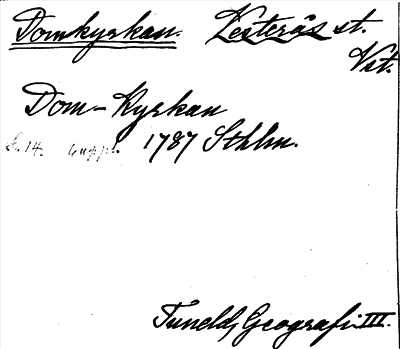 Domkyrkan. Vesterås st.
Vst.
Dom-Kyrkan
S. 14. 1787 Sthlm.
Tuneld, Geografi III.